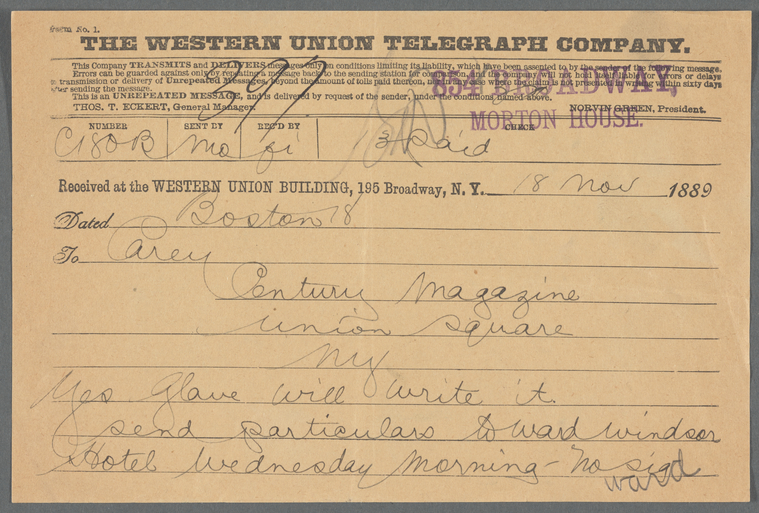 Form No. 1.
THE WESTERN UNION TELEGRAPH COMPANY.
This Company TRANSMITS and DELIVERS messages only on conditions limiting its liability, which have been assented to by the sender of the following message.
Errors can be guarded against only by repeating a message back to the sending station for comparison, and the company will not hold itself liable for errors or delays
in transmission or delivery of Unrepeated Messages, beyond the amount of tolls paid thereon, nor in any case where the claim is not presented in writing within sixty days
after sending the message.
This is an UNREPEATED MESSAGE, and is delivered by request of the sender, under the conditions named above.
THOS. T. ECKERT, General Manager. NORVIN GREEN, President.
854 BROADWAY,
MORTON HOUSE.
NUMBER SENT BY REC'D BY CHECK
C180B Ma fi Paid
Received at the WESTERN UNION BUILDING, 195 Broadway, N. Y. 18 Nov 1889
Dated Boston 18
To Carey
Century Magazine
Union Square
NY
Yes Glave will write it.
send particulars to Ward Windsor
Hotel Wednesday morning - No sig
ward